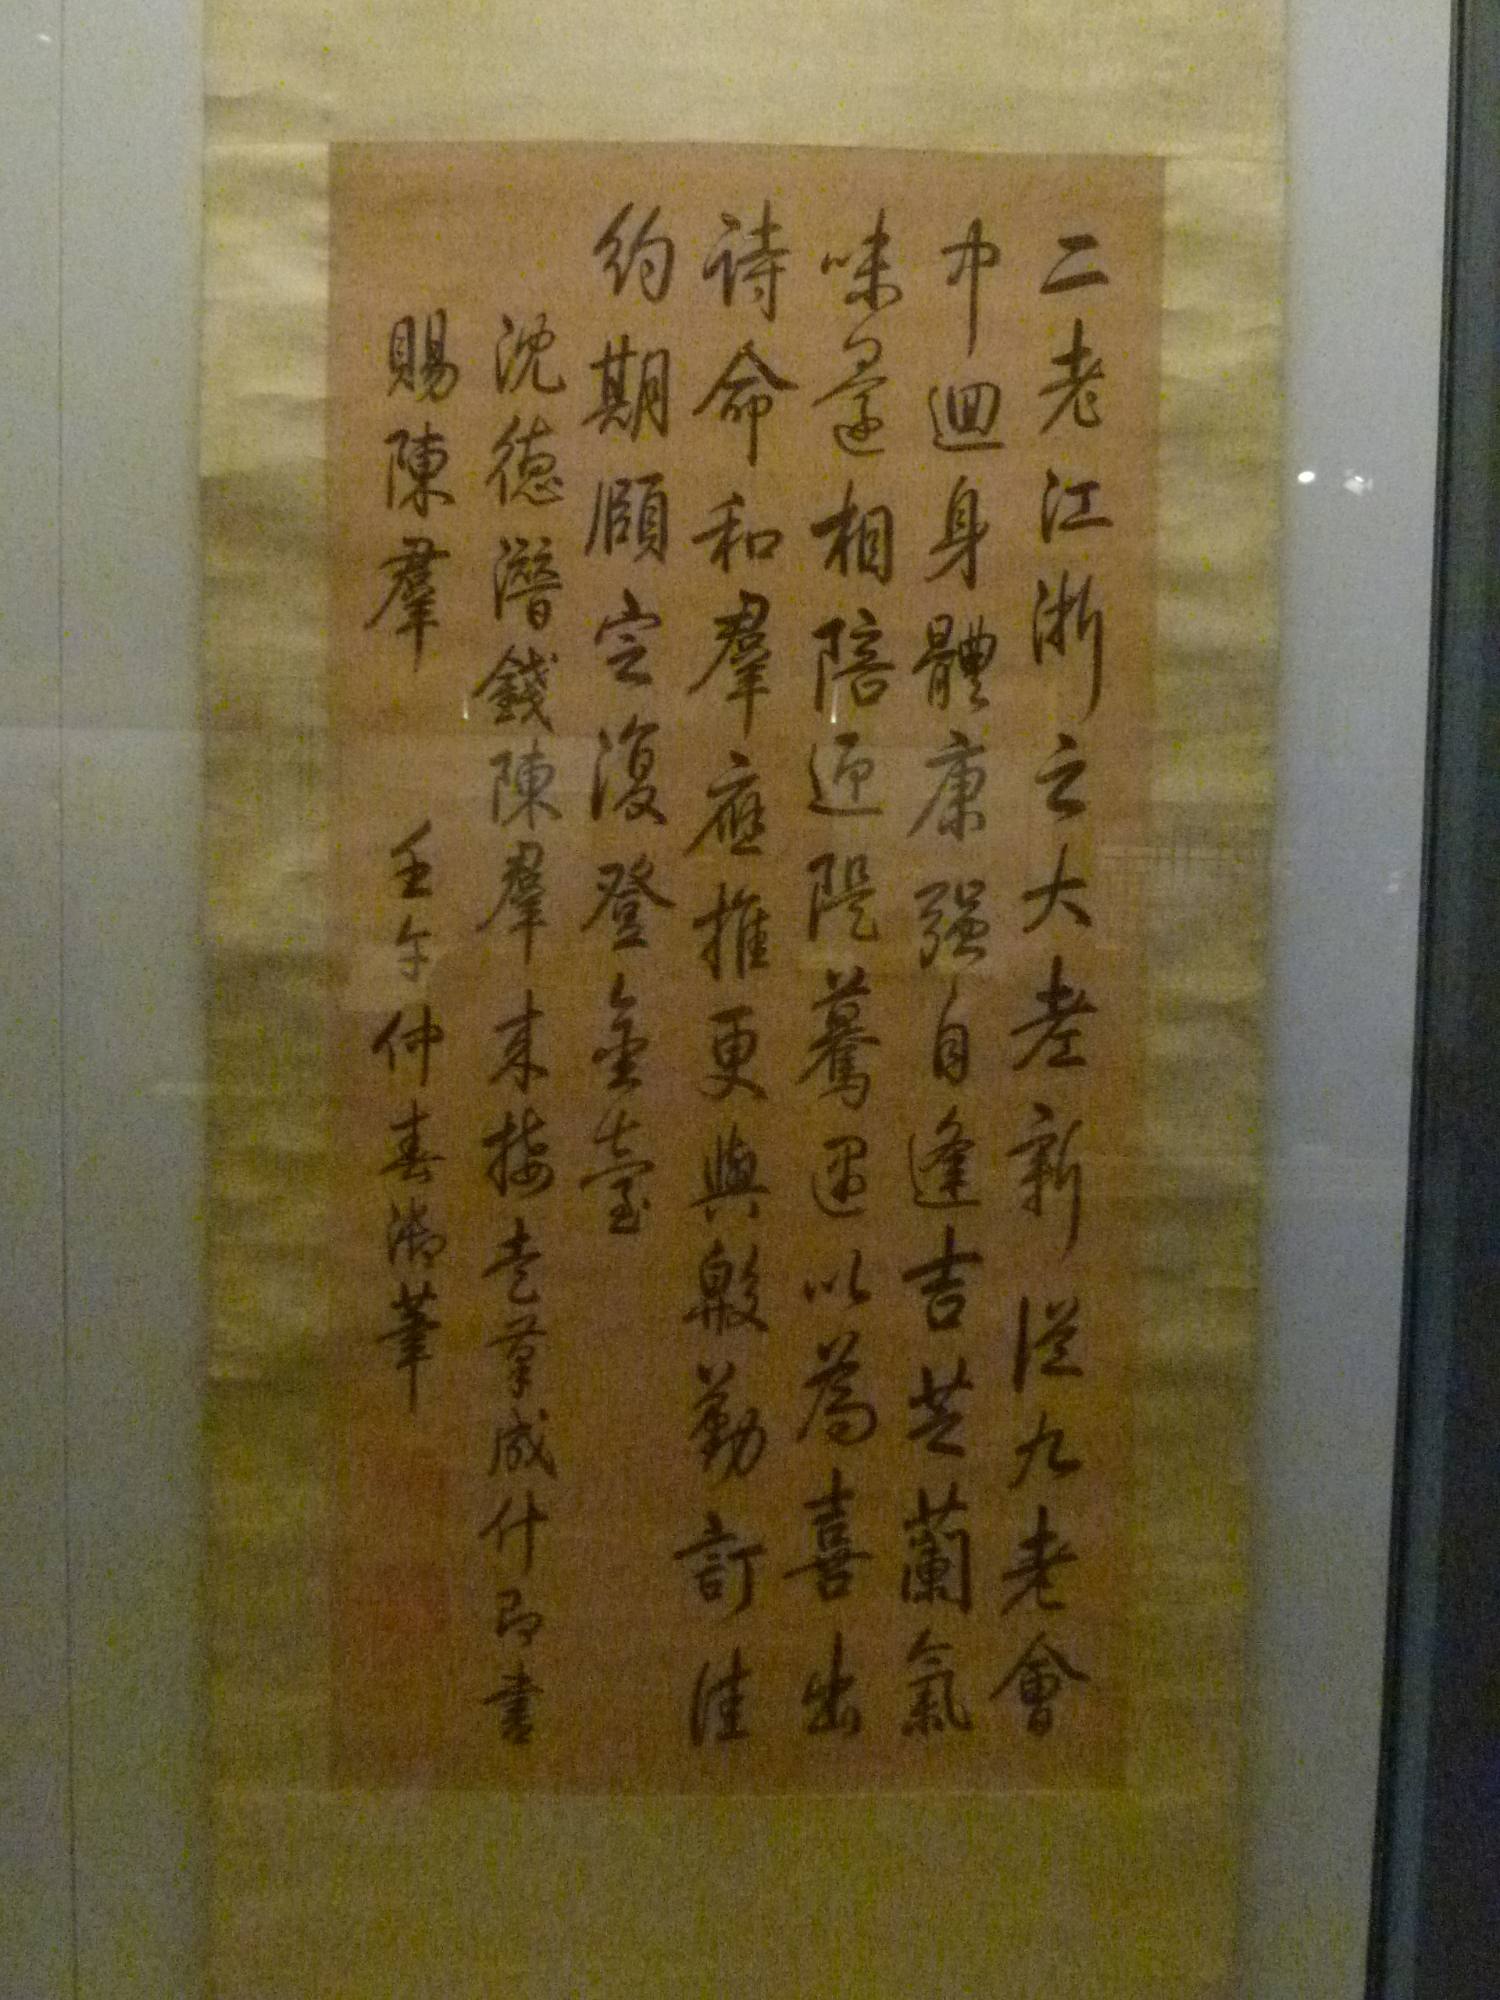 二老江浙之大老新從九老會
中迴身體康强自逢吉芝蘭氣
味還相陪迎隄驀遇以為喜出
詩命和羣應推更與殷勤訂佳
約期頤定復登金臺
沈德潛錢陳羣來接走筆成什即書
賜陳羣 壬午仲春御筆